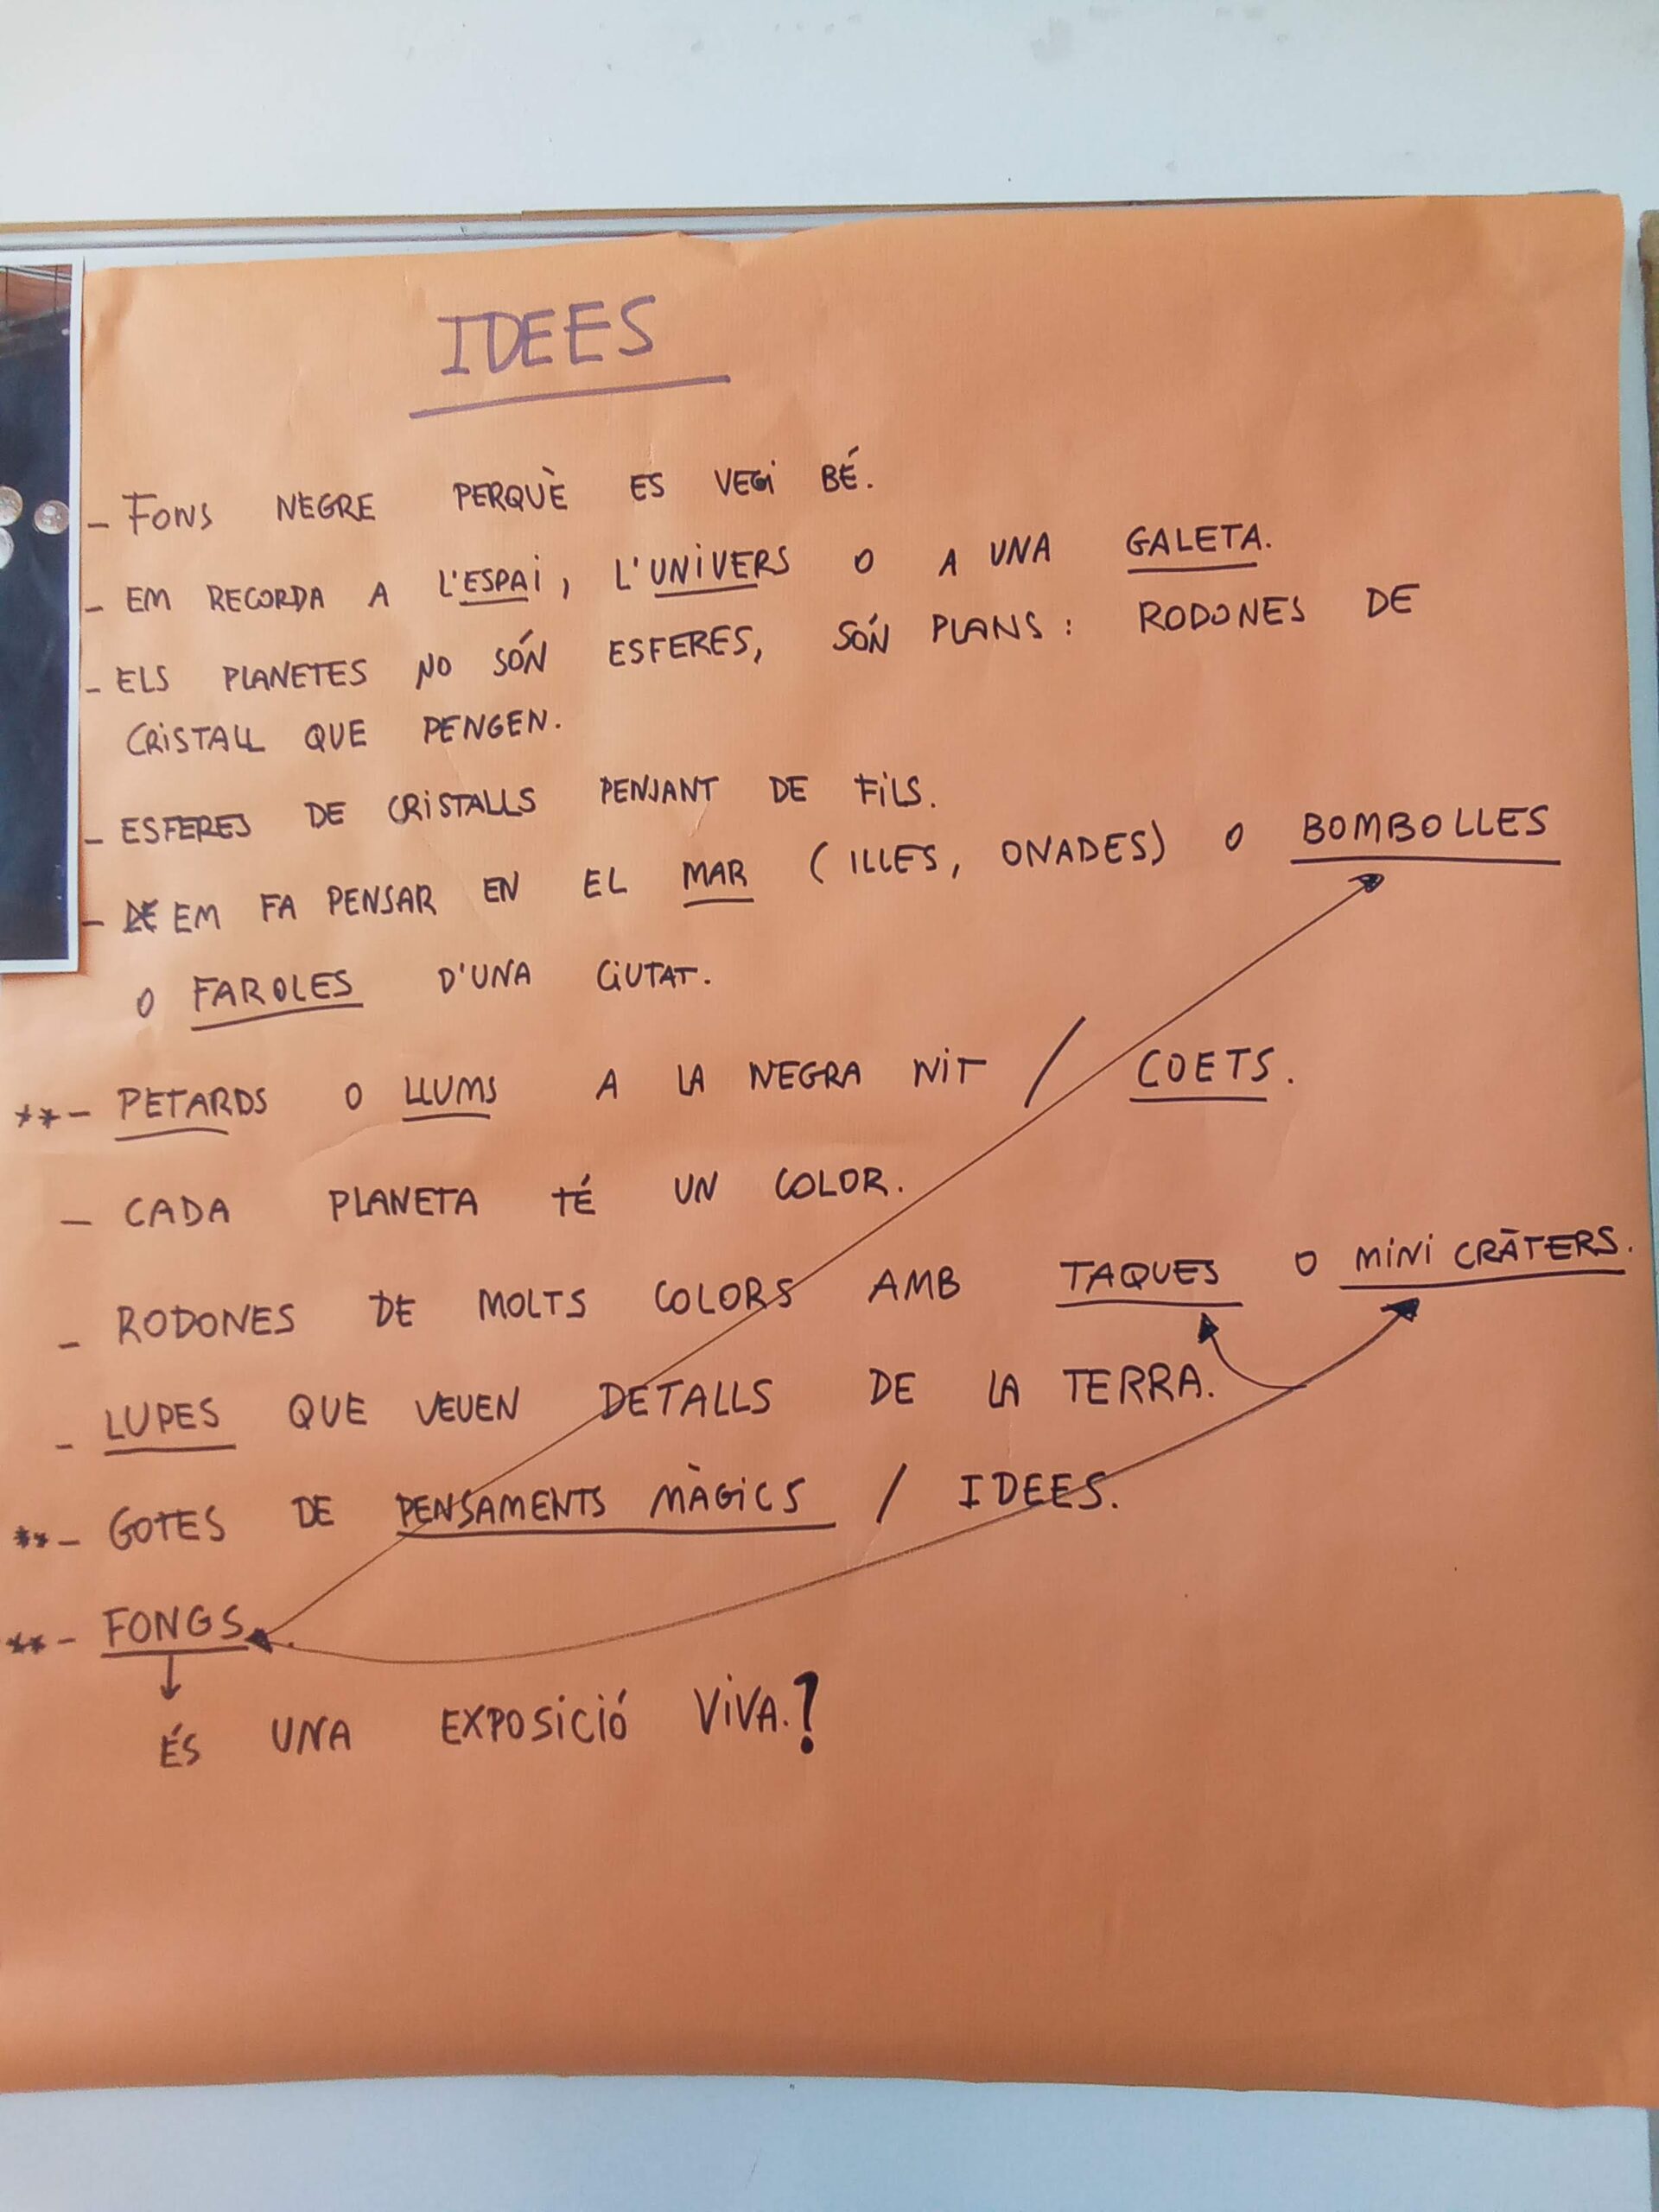 IDEES
- FONS NEGRE PERQUÈ ES VEGI BÉ.
- EM RECORDA A L'ESPAI, L'UNIVERS O A UNA GALETA.
- ELS PLANETES NO SÓN ESFERES, SÓN PLANS: RODONES DE
CRISTALL QUE PENGEN.
- ESFERES DE CRISTALLS PENJANT DE FILS.
- DE EM FA PENSAR EN EL MAR (ILLES, ONADES) O BOMBOLLES
O FAROLES D'UNA CIUTAT.
**- PETARDS O LLUMS A LA NEGRA NIT / COETS.
- CADA PLANETA TÉ UN COLOR.
- RODONES DE MOLTS COLORS AMB TAQUES O MINI CRÀTERS.
- LUPES QUE VEUEN DETALLS DE LA TERRA.
**- GOTES DE PENSAMENTS MÀGICS / IDEES.
**- FONGS.
ÉS UNA EXPOSICIÓ VIVA.?